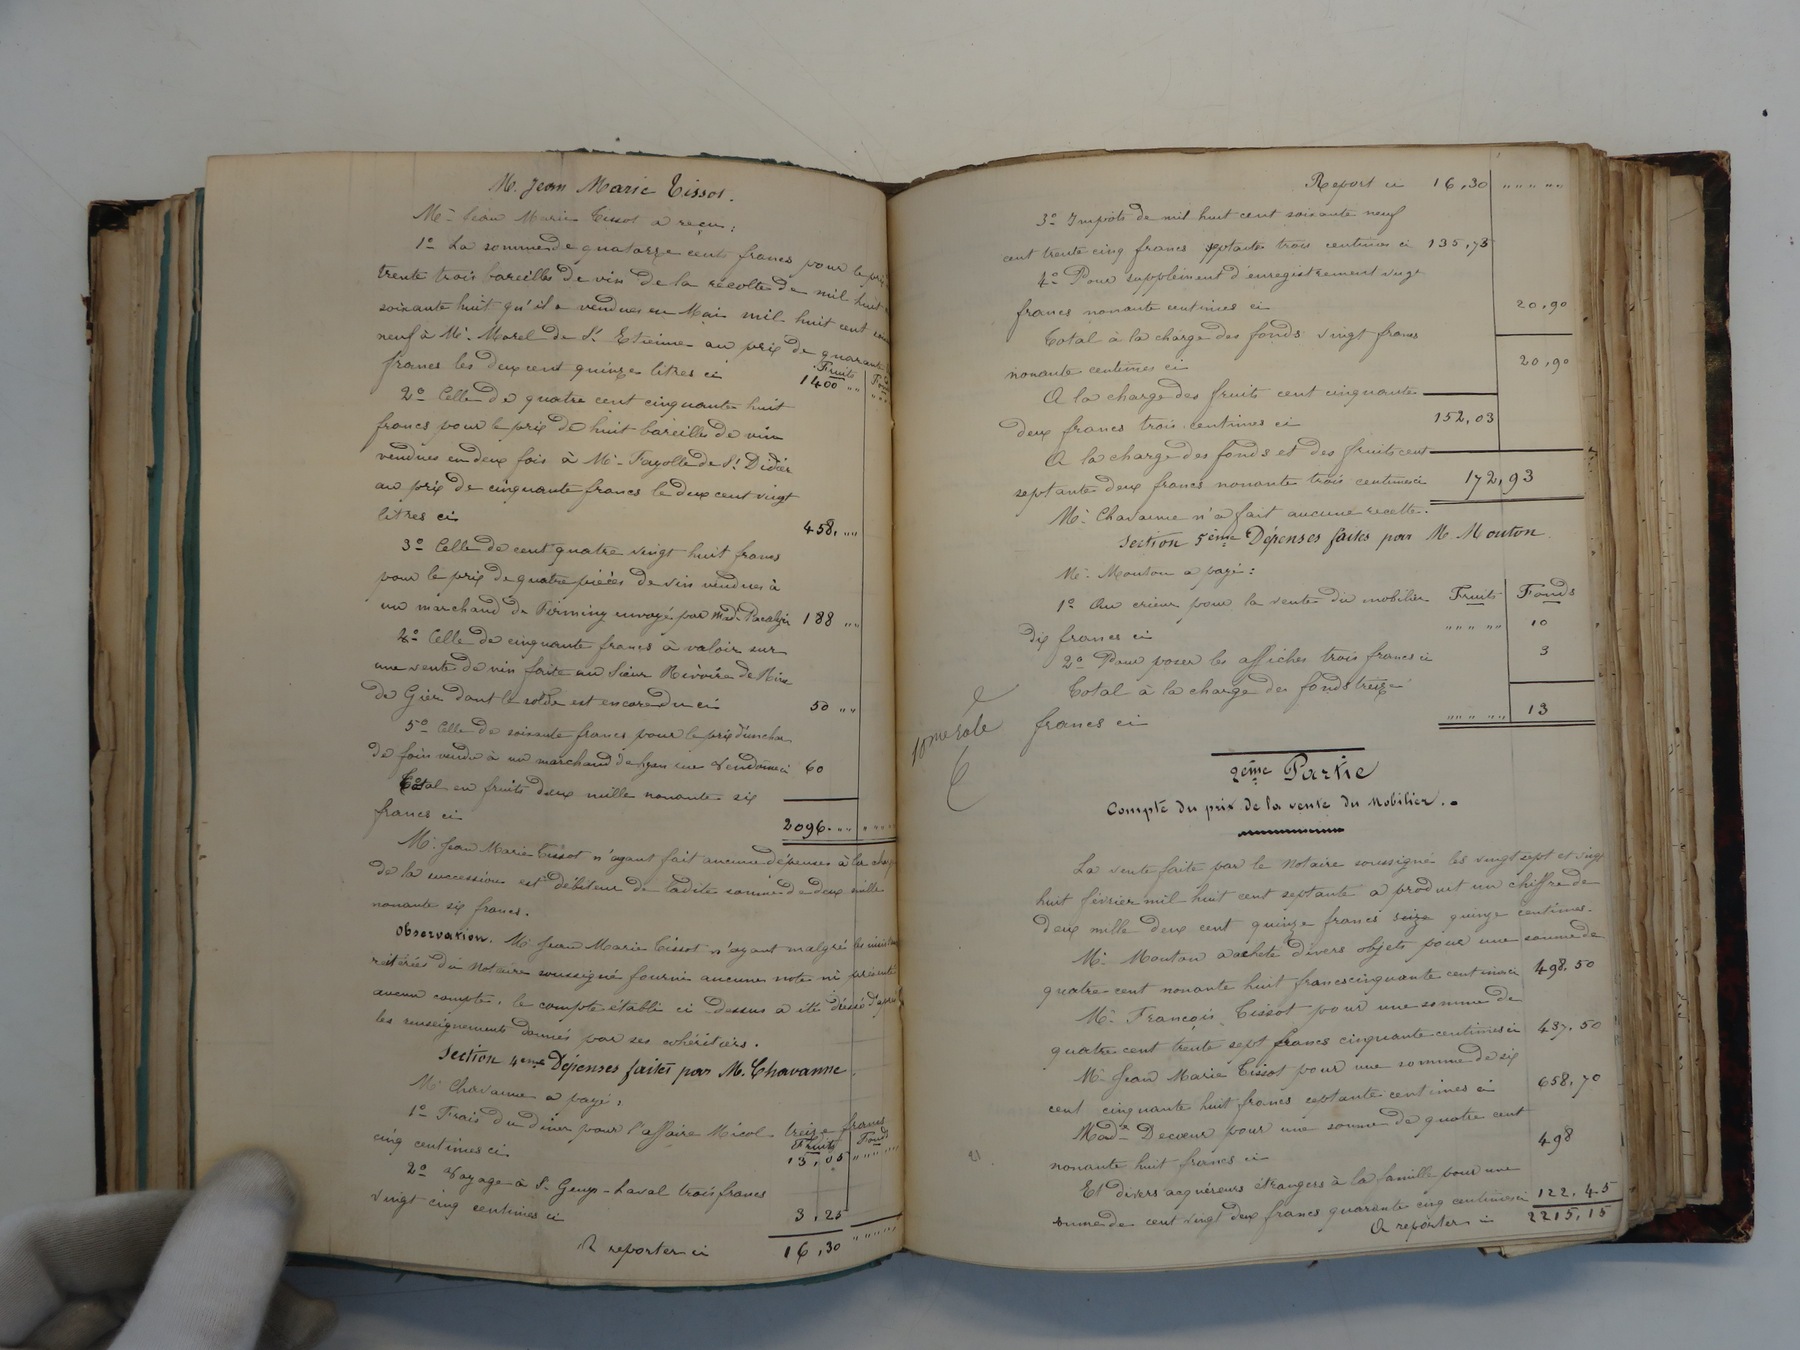 M. Jean Marie Tissot.
Mr. Jean Marie Tissot a reçu:
1º La somme de quatorze cents francs pour le prix
trente trois bareilles de vin de la récolte de mil huit
soixante huit qu'il a vendues en Mai mil huit cent
neuf à Mr. Morel de St. Etienne au prix de quarante
francs les deux cent quinze litres ci
Fruits
1400 " "
2º Celle de quatre cent cinquante huit
francs pour le prix de huit bareilles de vin
vendues en deux fois à Mr. Fayolle de St. Didier
au prix de cinquante francs le deux cent vingt
litres ci 458. " "
3º Celle de cent quatre vingt huit francs
pour le prix de quatre pièces de vin vendues à
un marchand de Firminy envoyé par Md. 188 " "
4º Celle de cinquante francs à valoir sur
une vente de vin faite au Sieur Rivoire de Rive
de Gier dont le solde est encore du ci 50 " "
5º Celle de soixante francs pour le prix d'un char
de foin vendu à un marchand de Lyon rue Vendôme ci 60
Total en fruits deux mille nonante six
francs ci 2096. " " " " "
Mr. Jean Marie Tissot n'ayant fait aucune dépenses à la
de la succession est débiteur de ladite somme de deux mille
nonante six francs.
Observation. Mr. Jean Marie Tissot n'ayant malgré les
réitérées du Notaire soussigné fourni aucune note ni présenté
aucun compte, le compte établi ci dessus a été dressé d'après
les renseignements donnés par ses cohéritiers.
Section 4eme Dépenses faites par M. Chavanne.
Mr. Chavanne a payé:
1º Frais du diner pour l'affaire Nicol treize francs
cinq centimes ci
Fruits Fonds
13,05 " " " "
2º Voyage à St. Genys-Laval trois francs
vingt cinq centimes ci 3,25
A reporter ci 16,30 " " " "
Report ci 16,30 " " " " "
3º Impôts de mil huit cent soixante neuf
cent trente cinq francs septante trois centimes ci 135,73
4º Pour supplément d'enregistrement vingt
francs nonante centimes ci 20,90
Total à la charge des fonds vingt francs
nonante centimes ci 20,90
A la charge des fruits cent cinquante
deux francs trois centimes ci 152,03
A la charge des fonds et des fruits cent
septante deux francs nonante trois centimes ci 172,93
Mr. Chavanne n'a fait aucune recette.
Section 5eme Dépenses faites par M Mouton.
Mr. Mouton a payé:
1º Au crieur pour la vente du mobilier Fruits Fonds
dix francs ci " " " " 10
2º Pour poser les affiches trois francs ci 3
Total à la charge des fonds treize
francs ci " " " " 13
10me role
2eme Partie
Compte du prix de la vente du Mobilier.
La vente faite par le Notaire soussigné les vingt sept et vingt
huit février mil huit cent septante a produit un chiffre de
deux mille deux cent quinze francs seize quinze centimes.
Mr. Mouton a acheté divers objets pour une somme de
quatre cent nonante huit francs cinquante centimes ci 498.50
Mr. François Tissot pour une somme de
quatre cent trente sept francs cinquante centimes ci 437.50
Mr. Jean Marie Tissot pour une somme de six
cent cinquante huit francs septante centimes ci 658,70
Made Decœur pour une somme de quatre cent
nonante huit francs ci 498
Et divers acquéreurs étrangers à la famille pour une
somme de cent vingt deux francs quarante cinq centimes ci 122.45
A reporter ci 2215,15